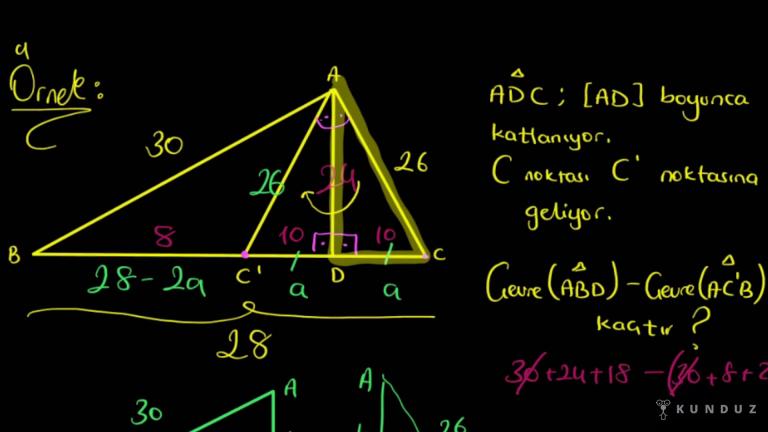 Örnek:
A
30
26
24
26
8
10
10
B
C'
D
C
28-2a
a
a
28
ADC; [AD] boyunca
katlanıyor.
C noktası C' noktasına
geliyor.
Çevre(ABD) - Çevre(AC'B)
kaçtır?
30+24+18 -(30+8+2
A
A
30
26
KUNDUZ